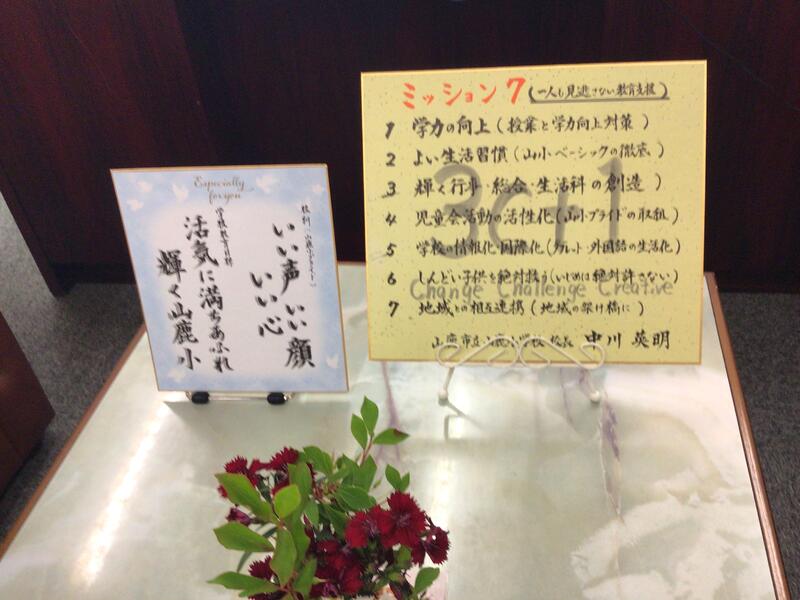 Especially
for you
校訓(山鹿小プライド)
いい声 いい顔
いい心
学校教育目標
活気に満ちあふれ
輝く山鹿小
ミッション7 (一人も見逃さない教育支援)
1 学力の向上(授業と学力向上対策)
2 よい生活習慣(山小ベーシックの徹底)
3 輝く行事・総合・生活科の創造
4 児童会活動の活性化(山小プライドの取組)
5 学校の情報化・国際化(タブレット・外国語の生活化)
6 しんどい子供を絶対援う(いじめは絶対許さない)
7 地域との相互連携(地域の架け橋に)
3C+1
Change Challenge Creative
山鹿市立山鹿小学校 校長 中川 英明